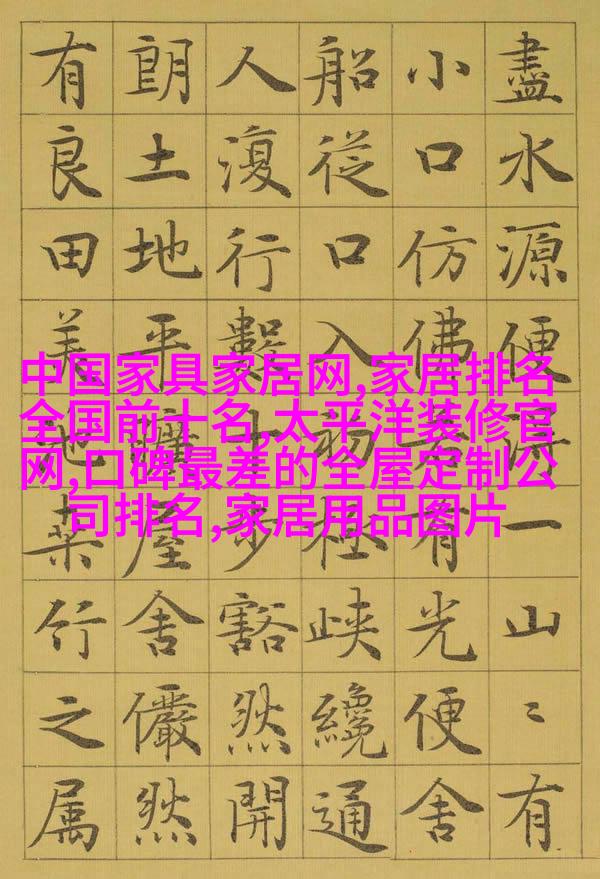 盡水源便得一山〻有
小口仿佛若有光便舍
船從口入初極峽纔通
人復行數十步豁然開
朗土地平曠屋舍儼然
有良田美池桑竹之属
中国家具家居网,家居排名
全国前十名,太平洋装修官
网,口碑最差的全屋定制公
司排名,家居用品图片